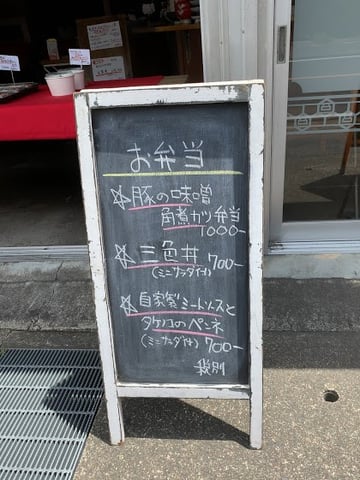 お弁当
☆豚の味噌
角煮カツ弁当
1000-
☆三色丼 700-
(ミニサラダ付)
☆自家製ミートソースと
タケノコのペンネ
(ミニサラダ付) 700-
税別